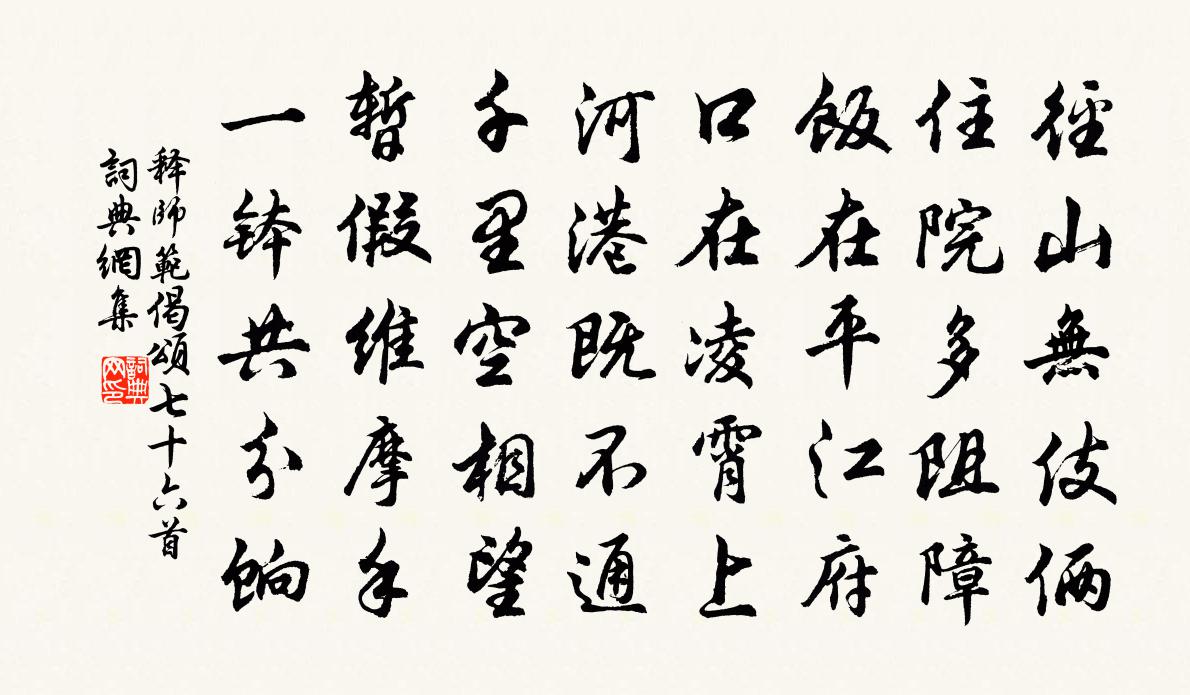 徑山無伎倆
住院多阻障
飯在平江府
口在凌霄上
河港既不通
千里空相望
暫假維摩手
一缽共分餉
释師範偈頌七十六首
詞典網集
詞典
网印